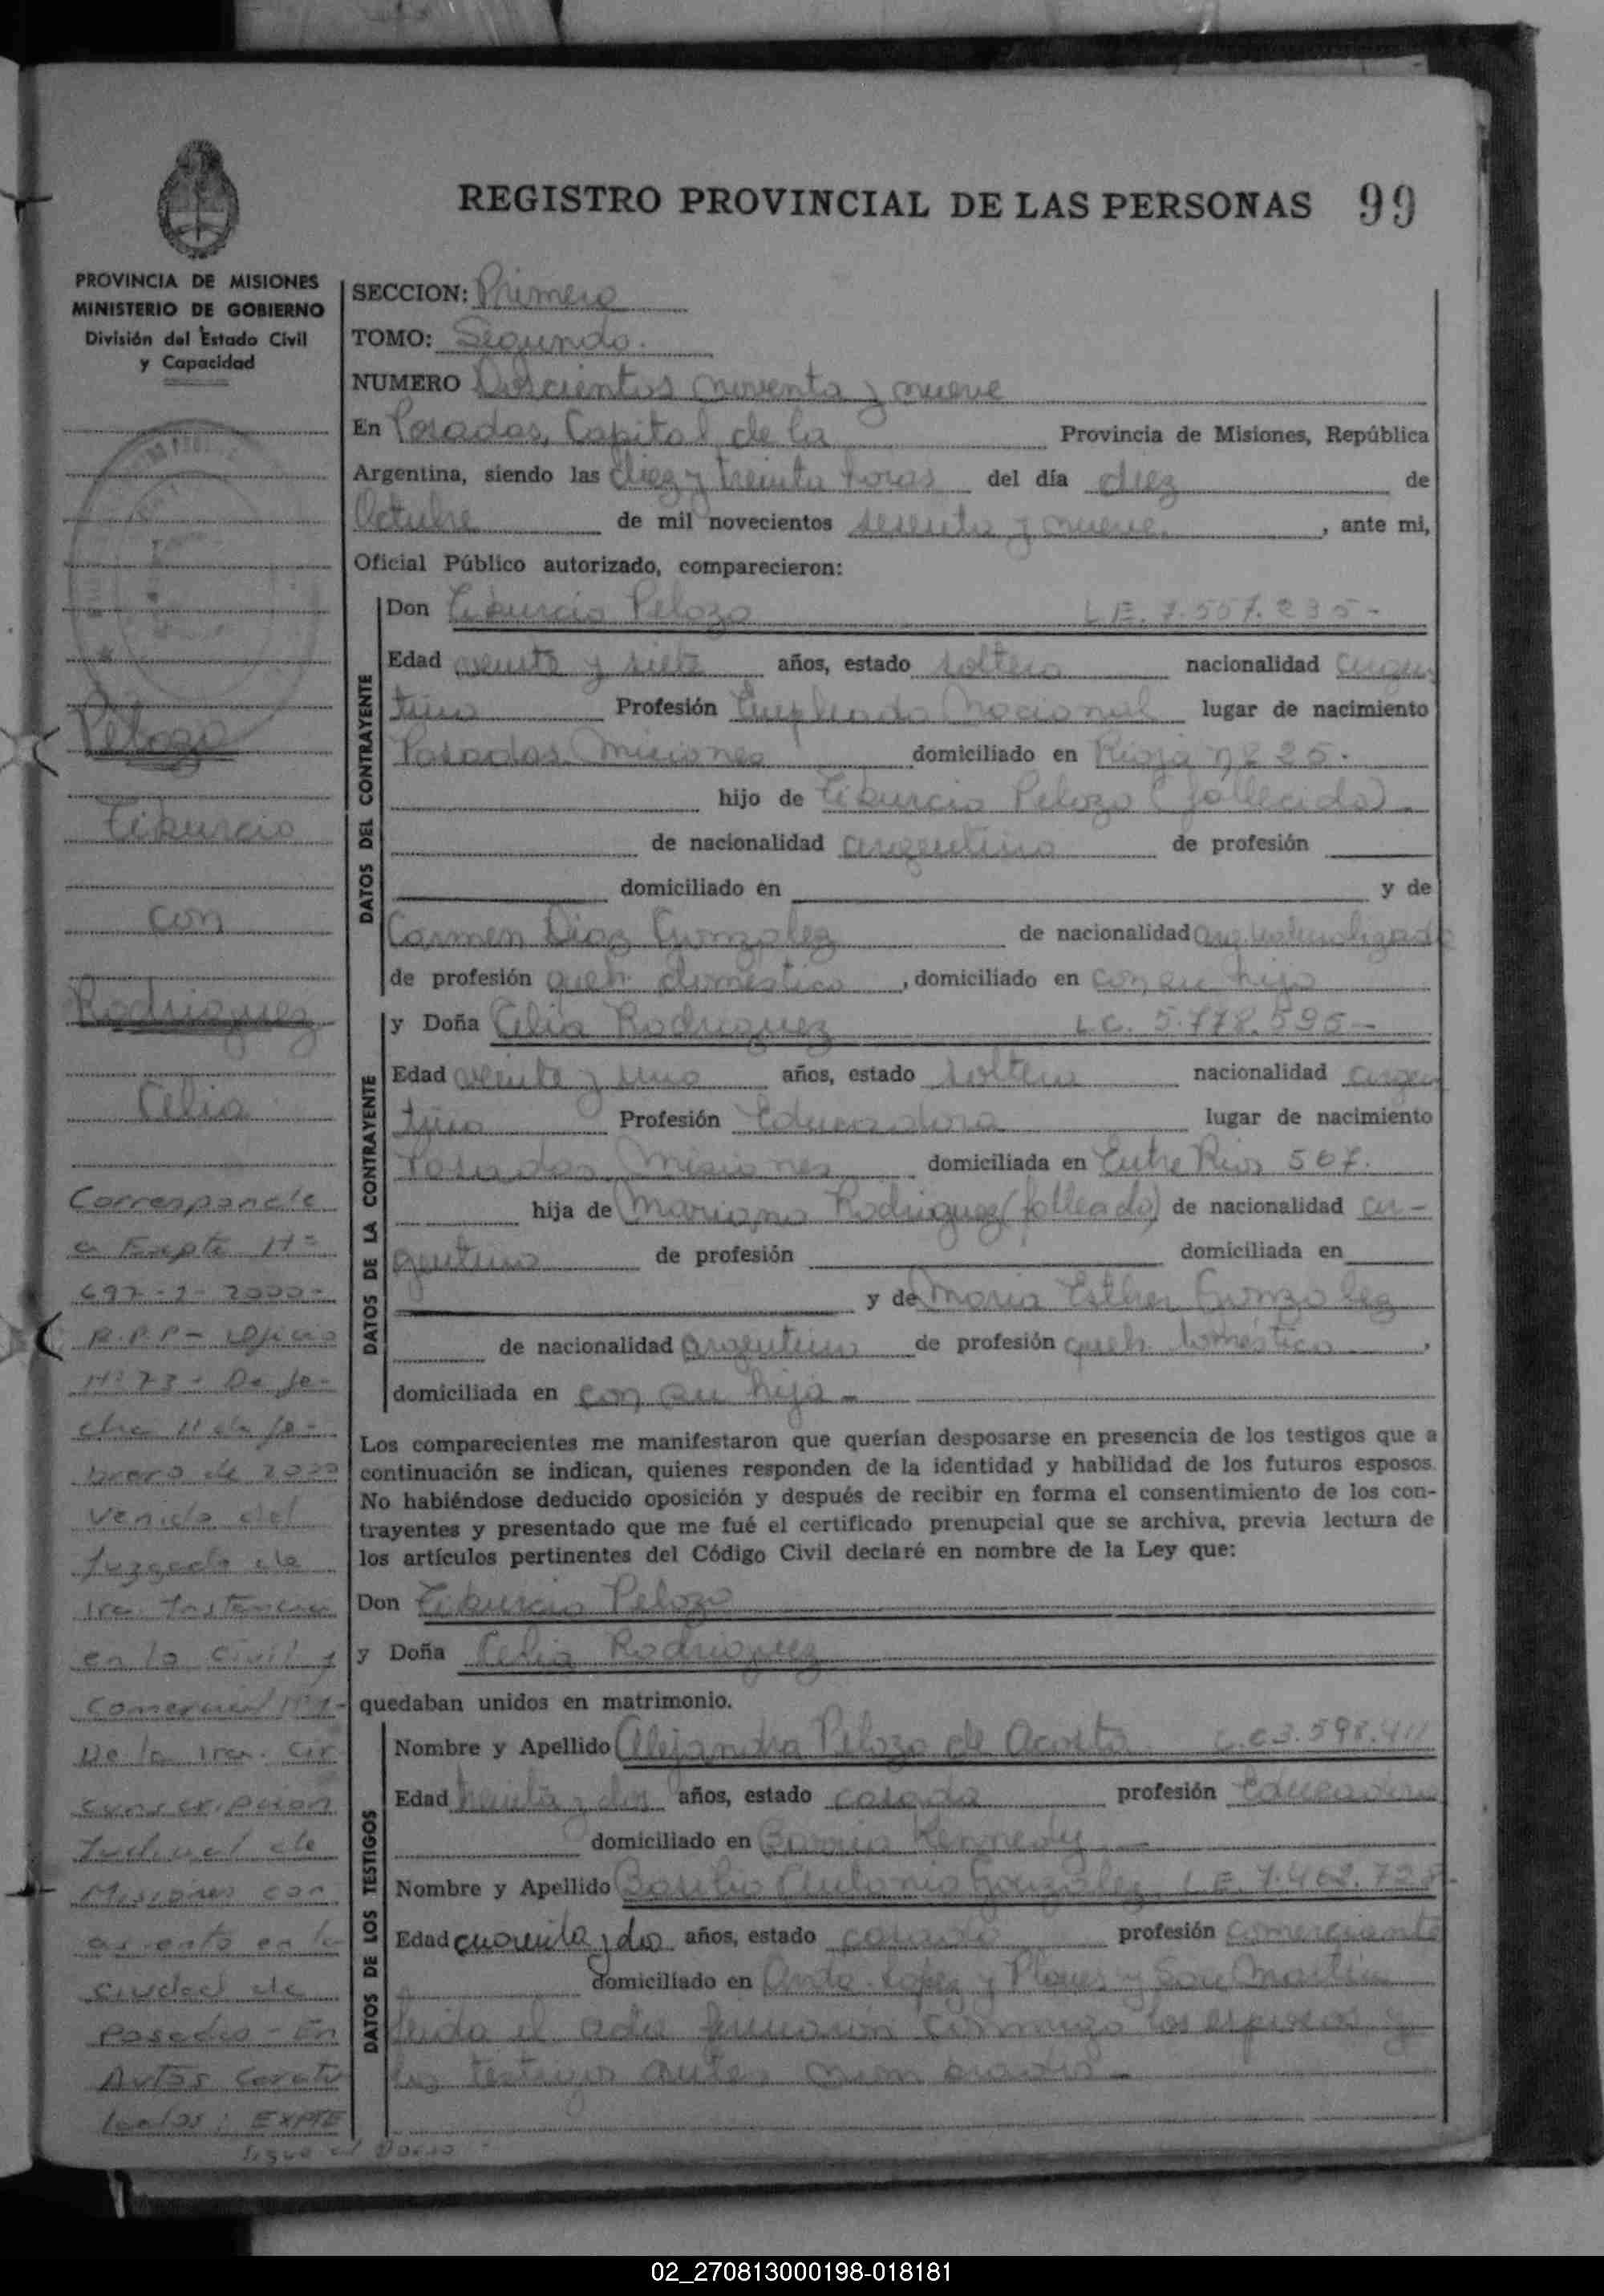 REGISTRO PROVINCIAL DE LAS PERSONAS 99
PROVINCIA DE MISIONES
MINISTERIO DE GOBIERNO
División del Estado Civil
y Capacidad
Pelozo
Tiburcio
con
Rodriguez
Celia
Corresponde
a Expte Nº
697-1-2000-
R.P.P- Oficio
Nº 73 - De fe-
cha 11 de fe-
brero de 2000
venido del
Juzgado de
1ra. Instancia
en lo Civil y
Comercial Nº1-
De la 1ra. Cir
cunscripcion
Judicial de
Misiones con
asiento en la
ciudad de
Posadas - En
Autos Caratu
lados: EXPTE
Sigue al Dorso -
SECCION: Primera
TOMO: Segundo.
NUMERO Doscientos noventa y nueve
En Posadas, Capital de la Provincia de Misiones, República
Argentina, siendo las diez y treinta horas del día diez de
Octubre de mil novecientos sesenta y nueve, ante mi,
Oficial Público autorizado, comparecieron:
DATOS DEL CONTRAYENTE
Don Tiburcio Pelozo L.E. 7.557.235-
Edad veinte y siete años, estado soltero nacionalidad argen
tino Profesión Empleado Nacional lugar de nacimiento
Posadas Misiones domiciliado en Rioja
hijo de Tiburcio Pelozo (fallecido)
de nacionalidad argentino de profesión
domiciliado en y de
Carmen Diaz Gonzalez de nacionalidad arg. naturalizada
de profesión queh. domestico, domiciliado en con su hijo
DATOS DE LA CONTRAYENTE
y Doña Celia Rodriguez L.C. 5.778.595-
Edad veinte y uno años, estado soltera nacionalidad argen
tina Profesión Educadora lugar de nacimiento
Posadas Misiones domiciliada en Entre Rios 567.
hija de Mariano Rodriguez (fallecido) de nacionalidad ar-
gentino de profesión domiciliada en
y de Maria Esther Gonzalez
de nacionalidad argentina de profesión queh. domestico,
domiciliada en con su hija-
Los comparecientes me manifestaron que querían desposarse en presencia de los testigos que a
continuación se indican, quienes responden de la identidad y habilidad de los futuros esposos.
No habiéndose deducido oposición y después de recibir en forma el consentimiento de los con-
trayentes y presentado que me fué el certificado prenupcial que se archiva, previa lectura de
los artículos pertinentes del Código Civil declaré en nombre de la Ley que:
Don Tiburcio Pelozo
y Doña Celia Rodriguez
quedaban unidos en matrimonio.
DATOS DE LOS TESTIGOS
Nombre y Apellido Alejandra Pelozo de Acosta L.C 3.598.911
Edad treinta y dos años, estado casada profesión Educadora
domiciliado en Barrio Kennedy
Nombre y Apellido Basilio Antonio Gonzalez L.E. 7.462.728-
Edad cuarenta y dos años, estado casado profesión comerciante
domiciliado en Avda. Lopez y Planes y San Martin
leida el acta firmaron conmigo los esposos y
los testigos antes nombrados-
02_270813000198-018181